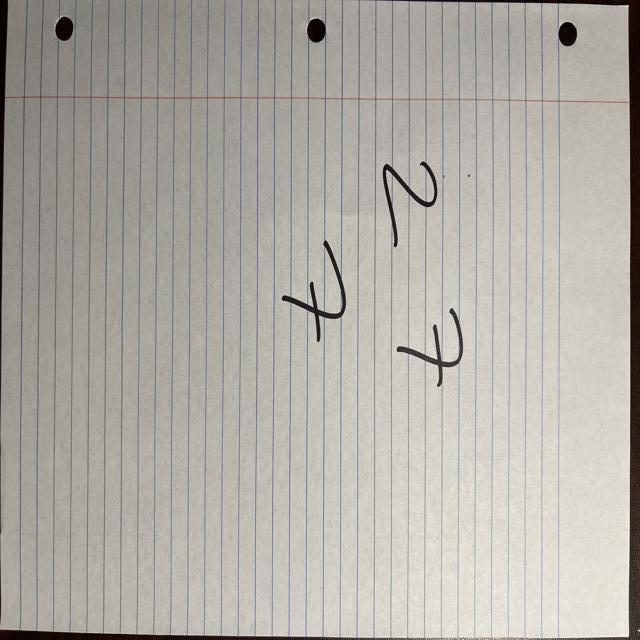 27
7